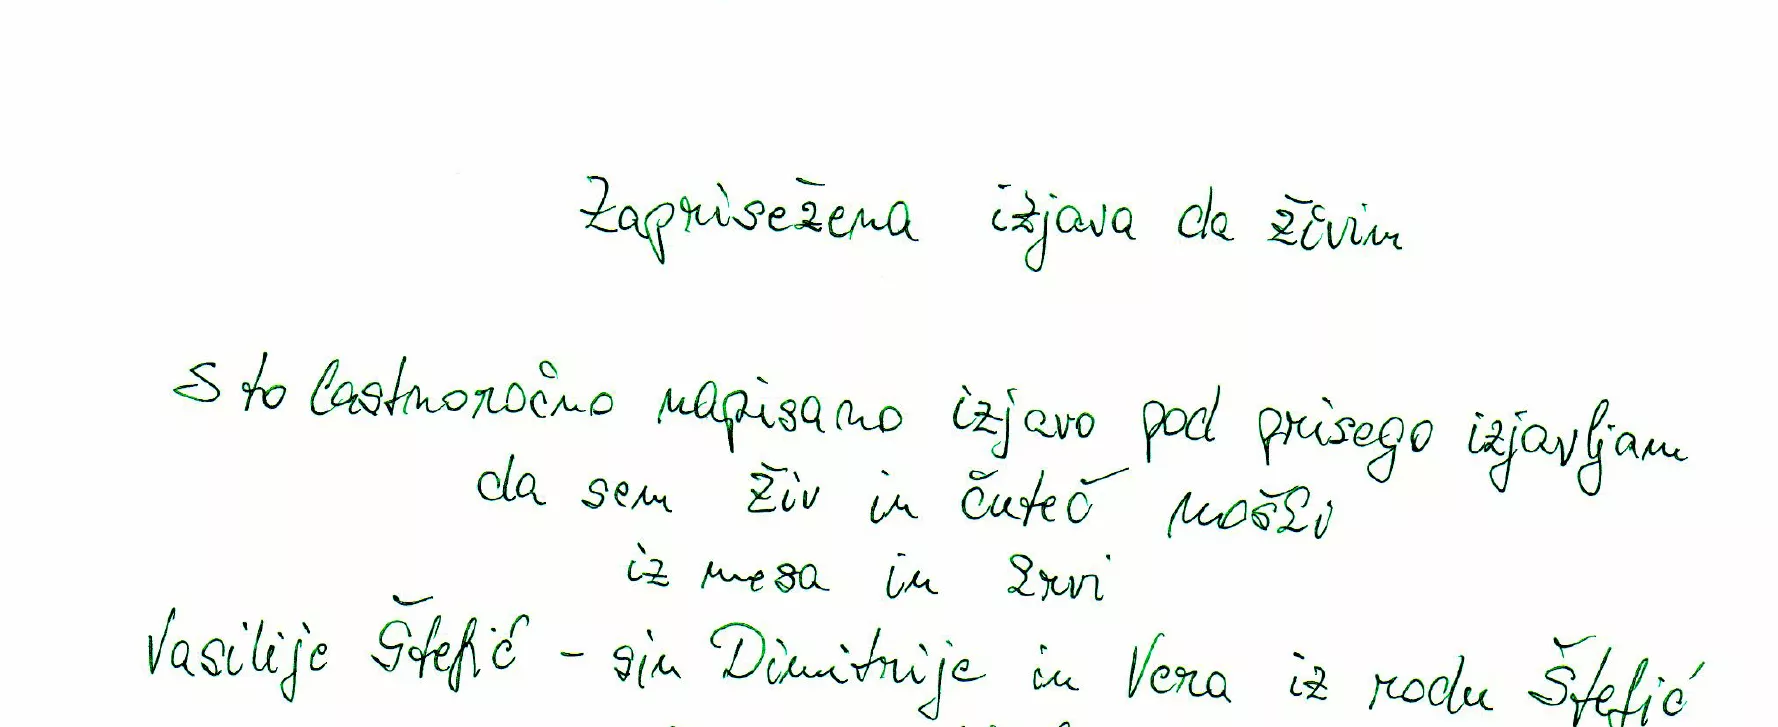 Zaprisežena izjava da živim
S to lastnoročno napisano izjavo pod prisego izjavljam
da sem živ in čuteč moški
iz mesa in krvi
Vasilije Štefić - sin Dimitrije in Vera iz rodu Štefić